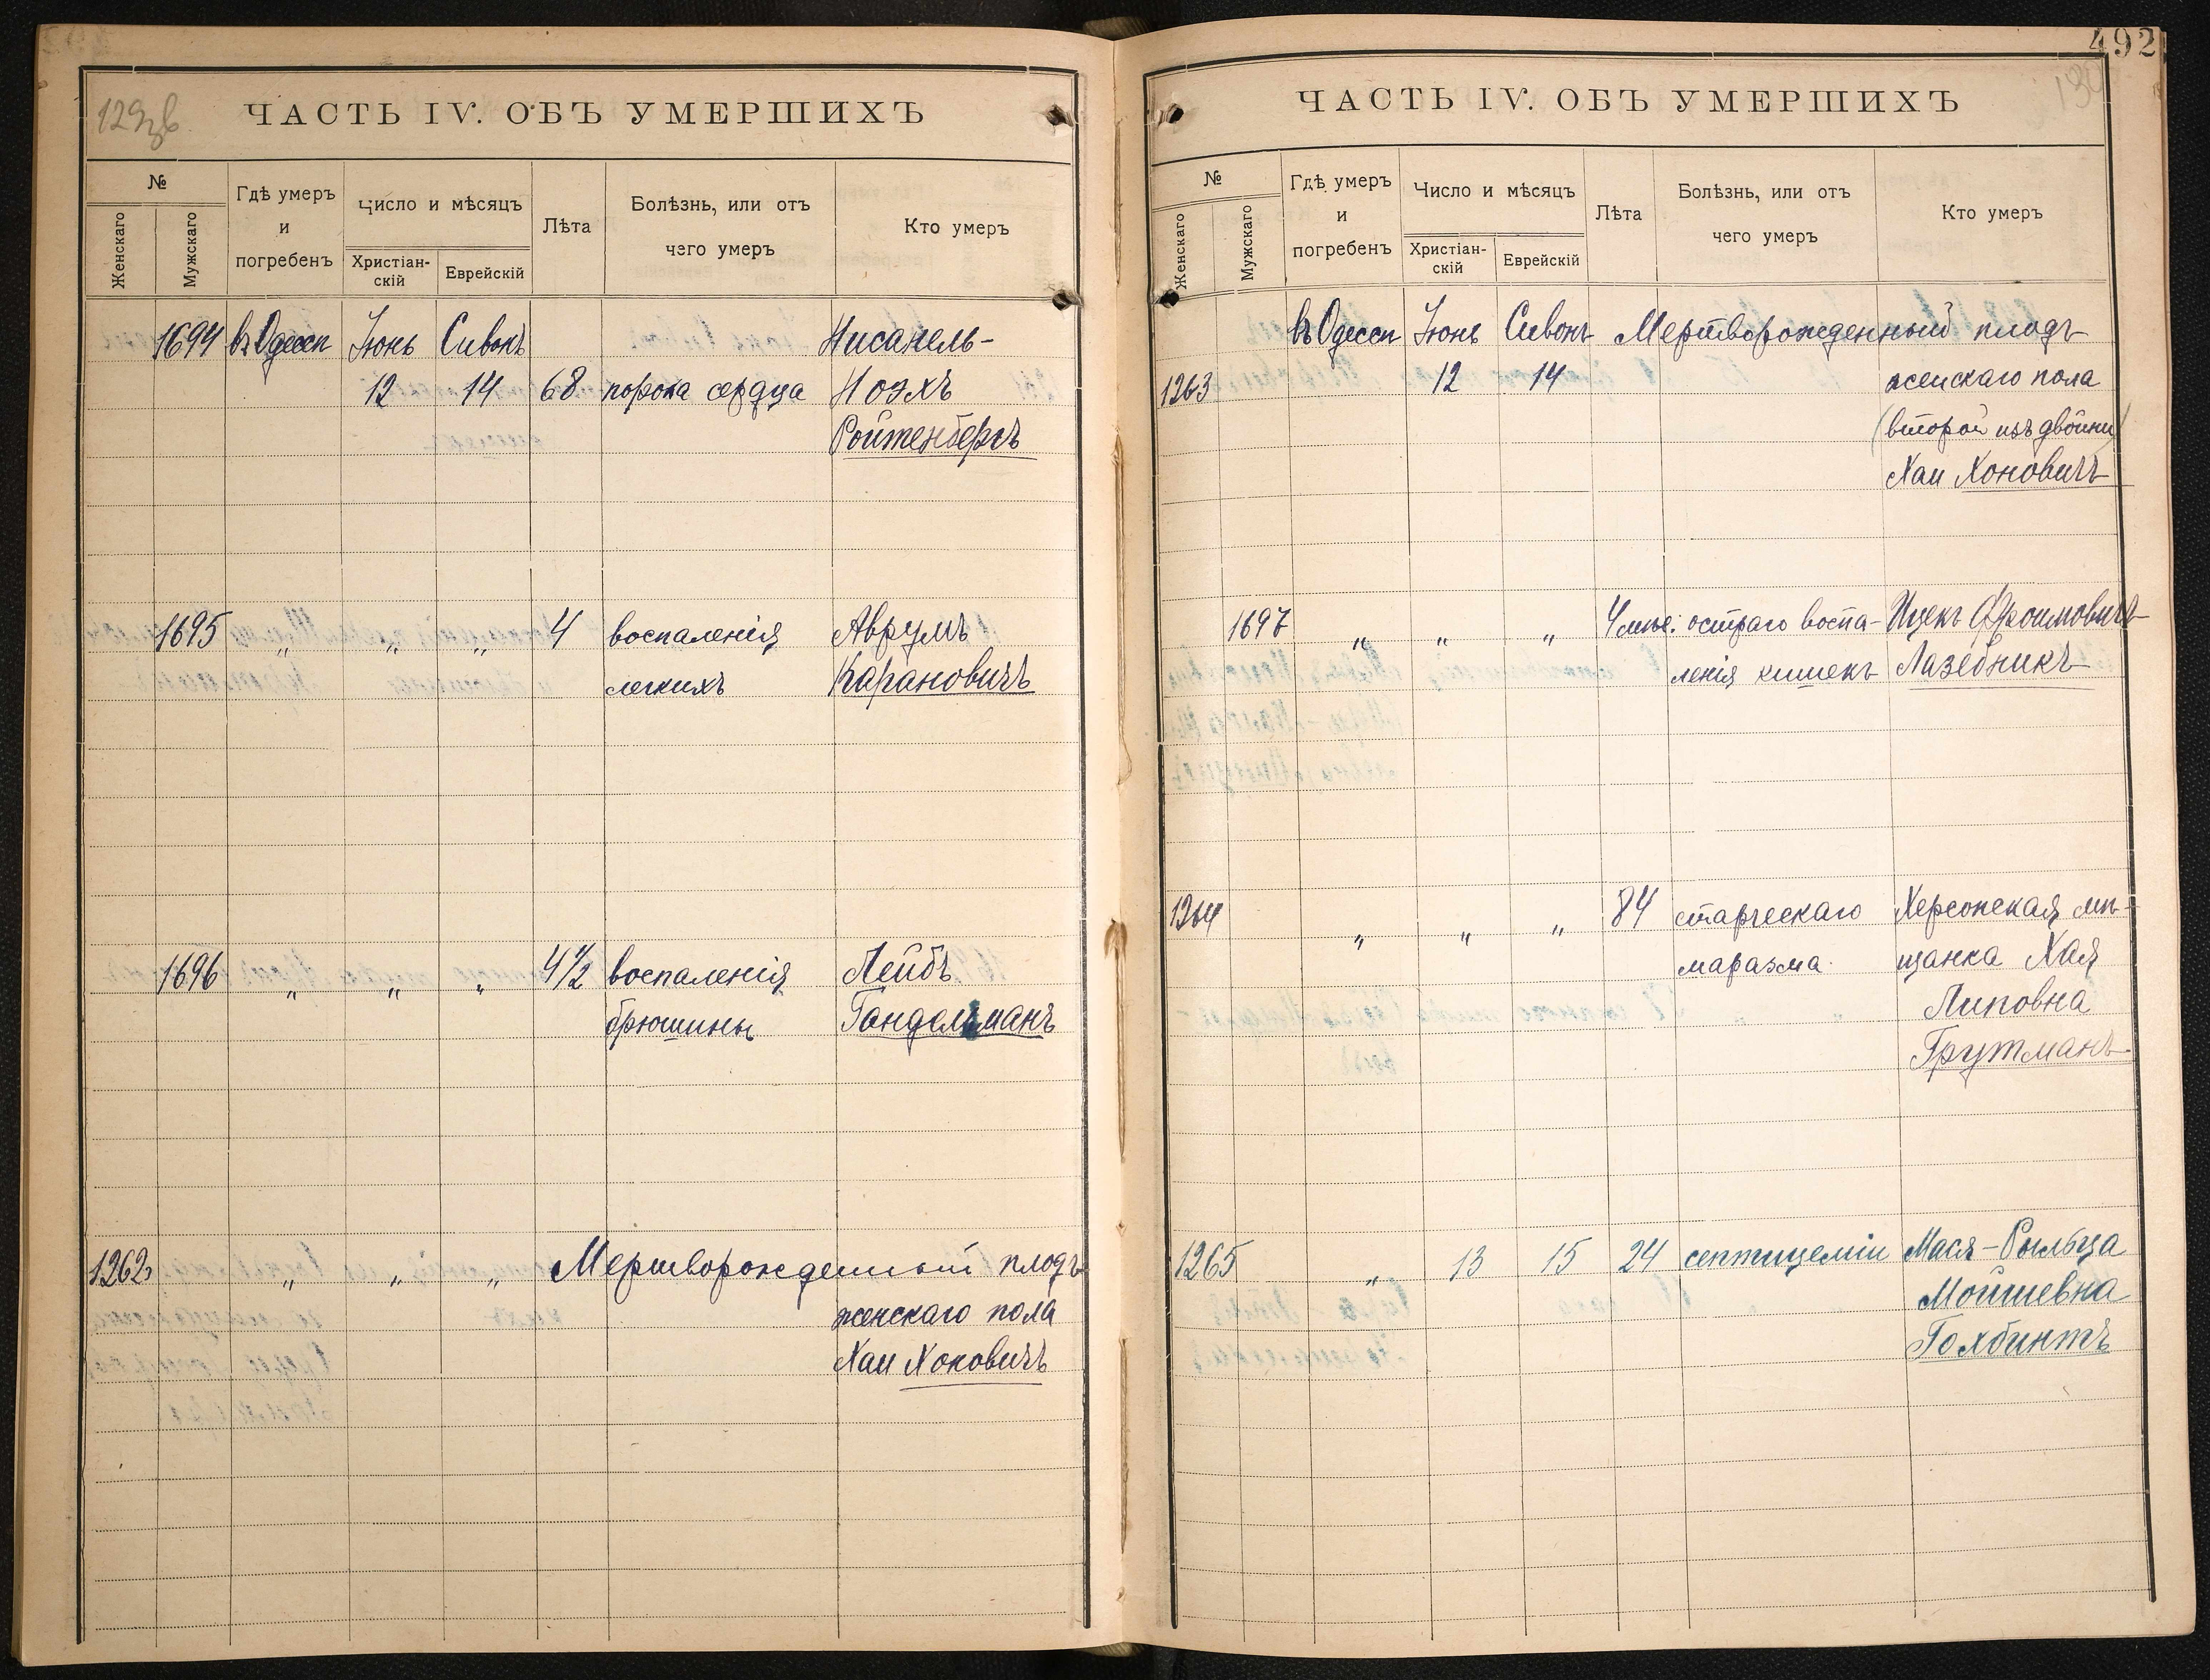 129об
ЧАСТЬ IV. ОБЪ УМЕРШИХЪ
№
Женскаго
Мужскаго
Гдѣ умеръ
и
погребенъ
Число и мѣсяцъ
Христіан-
скій
Еврейскій
Лѣта
Болѣзнь, или отъ
чего умеръ
Кто умеръ
1694 въ Одессѣ Іюнь Сивонъ Нисанель-
12 14 68 порока сердца Ноэхъ
Ройтенбергъ
1695 " " " 4 воспаленія Аврумъ
легкихъ Карановичъ
1696 " " " 4 1/2 воспаленія Лейбъ
брюшины Гандельманъ
1262 " " " Мертворожденный плодъ
женскаго пола
Хаи Хоновичъ
492
130
ЧАСТЬ IV. ОБЪ УМЕРШИХЪ
№
Женскаго
Мужскаго
Гдѣ умеръ
и
погребенъ
Число и мѣсяцъ
Христіан-
скій
Еврейскій
Лѣта
Болѣзнь, или отъ
чего умеръ
Кто умеръ
въ Одессѣ Іюнь Сивонъ Мертворожденный плодъ
1263 12 14 женскаго пола
(второй изъ двойни)
Хаи Хоновичъ
1697 " " " 4 мѣс: остраго воспа- Ицекъ Фроимовичъ
ленія кишекъ Лазебникъ
1264 " " " 84 старческаго Херсонская мѣ-
маразма щанка Хая
Липовна
Грутманъ
1265 " 13 15 24 септицеміи Мася-Рыльца
Мойшевна
Голбинтъ